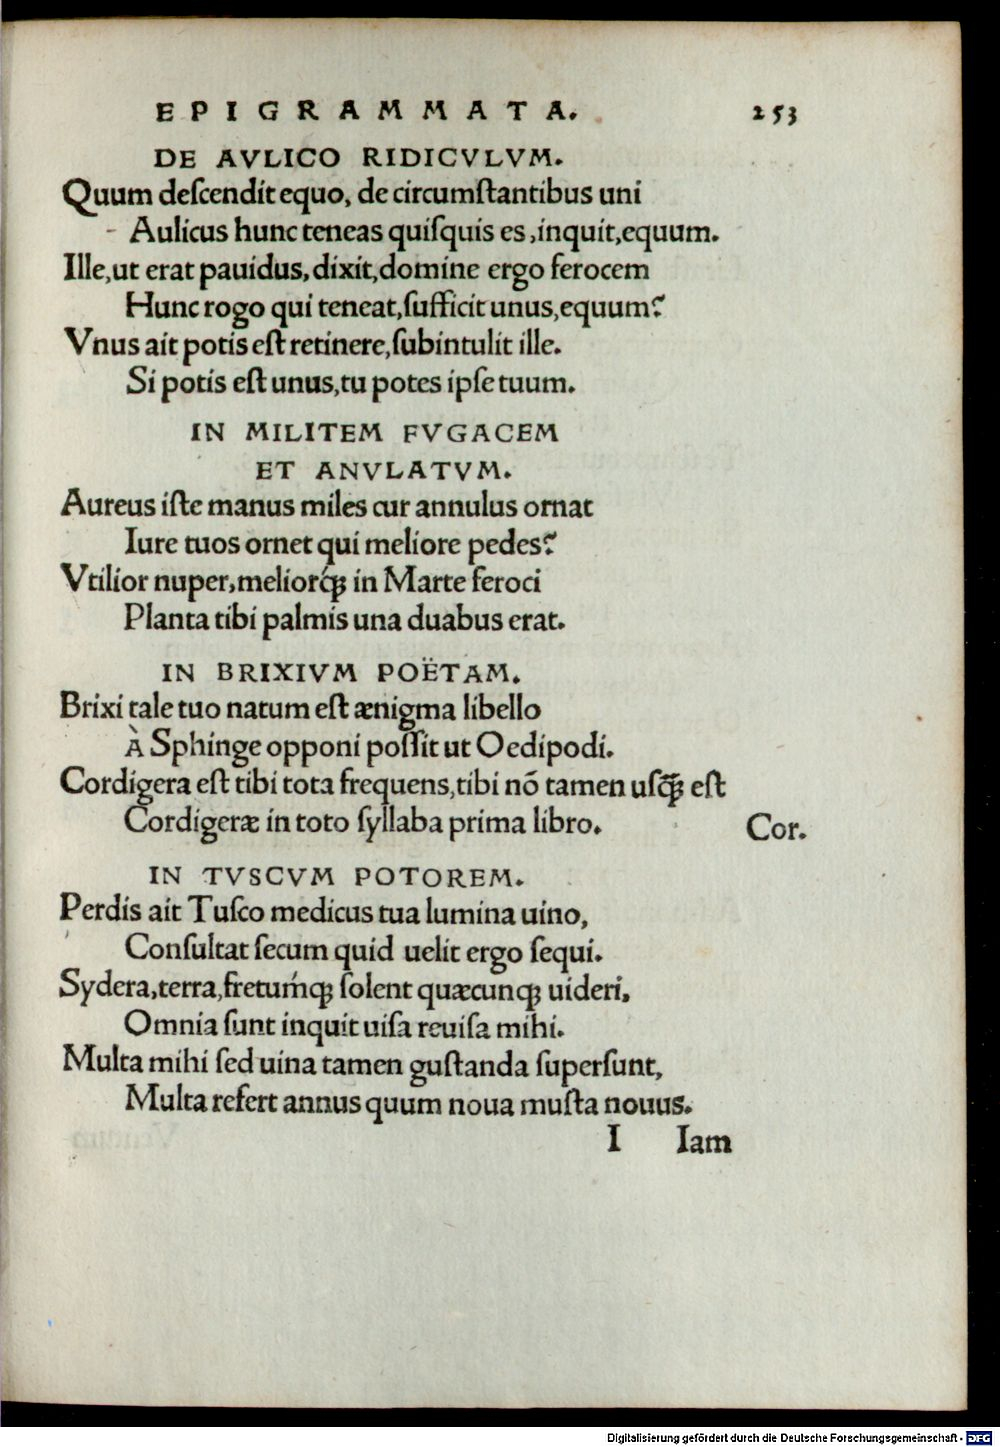 EPIGRAMMATA. 253
DE AVLICO RIDICVLVM.
Quum deſcendit equo, de circumſtantibus uni
Aulicus hunc teneas quiſquis es, inquit, equum.
Ille, ut erat pauidus, dixit, domine ergo ferocem
Hunc rogo qui teneat, ſufficit unus, equum?
Vnus ait potis eſt retinere, ſubintulit ille.
Si potis eſt unus, tu potes ipſe tuum.
IN MILITEM FVGACEM
ET ANVLATVM.
Aureus iſte manus miles cur annulus ornat
Iure tuos ornet qui meliore pedes?
Vtilior nuper, meliorq́ꝫ in Marte feroci
Planta tibi palmis una duabus erat.
IN BRIXIVM POËTAM.
Brixi tale tuo natum eſt ænigma libello
À Sphinge opponi poſſit ut Oedipodi.
Cordigera eſt tibi tota frequens, tibi nō tamen uſq̄ꝫ eſt
Cordigeræ in toto ſyllaba prima libro. Cor.
IN TVSCVM POTOREM.
Perdis ait Tuſco medicus tua lumina uino,
Conſultat ſecum quid uelit ergo ſequi.
Sydera, terra, fretuḿqꝫ ſolent quæcunqꝫ uideri,
Omnia ſunt inquit uiſa reuiſa mihi.
Multa mihi ſed uina tamen guſtanda ſuperſunt,
Multa refert annus quum noua muſta nouus.
I Iam
Digitalisierung gefördert durch die Deutsche Forschungsgemeinschaft - DFG